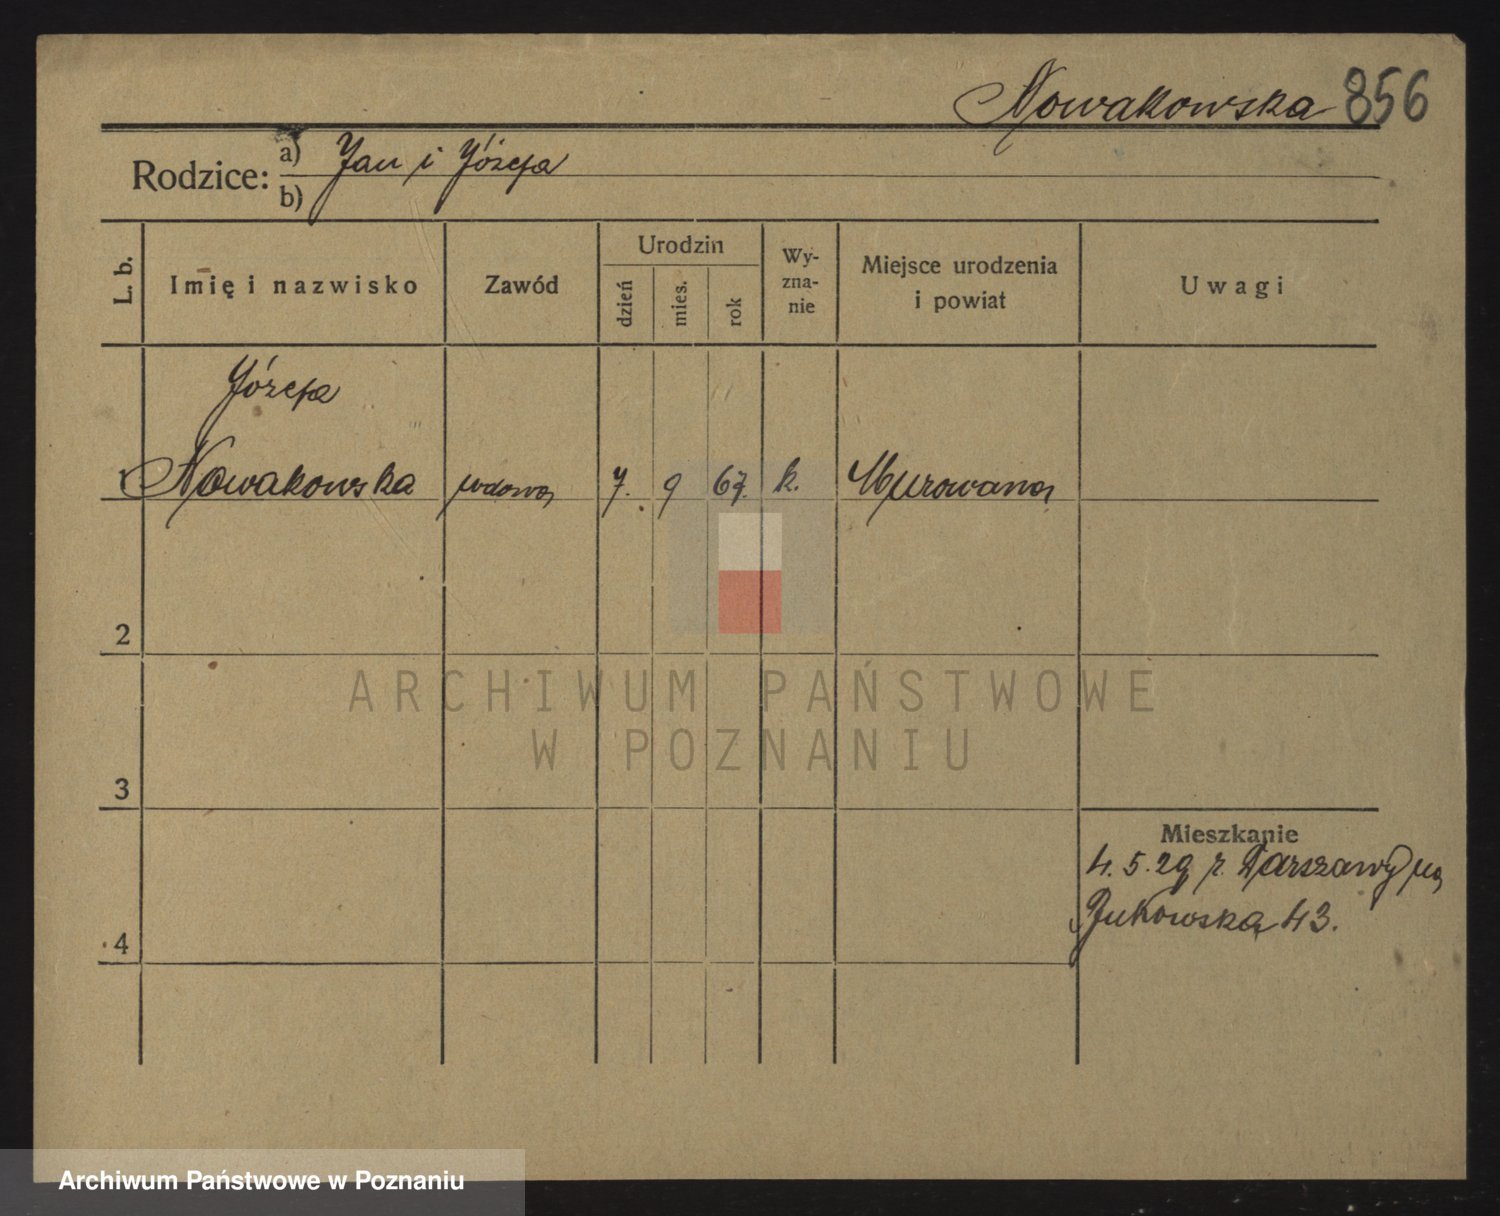 Nowakowska 856
Rodzice: a) Jan i Józefa
b)
L. b. Imię i nazwisko Zawód Urodzin dzień mies. rok Wy-zna-nie Miejsce urodzenia i powiat Uwagi
Józefa
1 Nowakowska wdowa 7. 9 67. k. Murowana
2
3
Mieszkanie
4. 5. 29 z Warszawy na
Bukowska 43.
4
ARCHIWUM PAŃSTWOWE
W POZNANIU
Archiwum Państwowe w Poznaniu